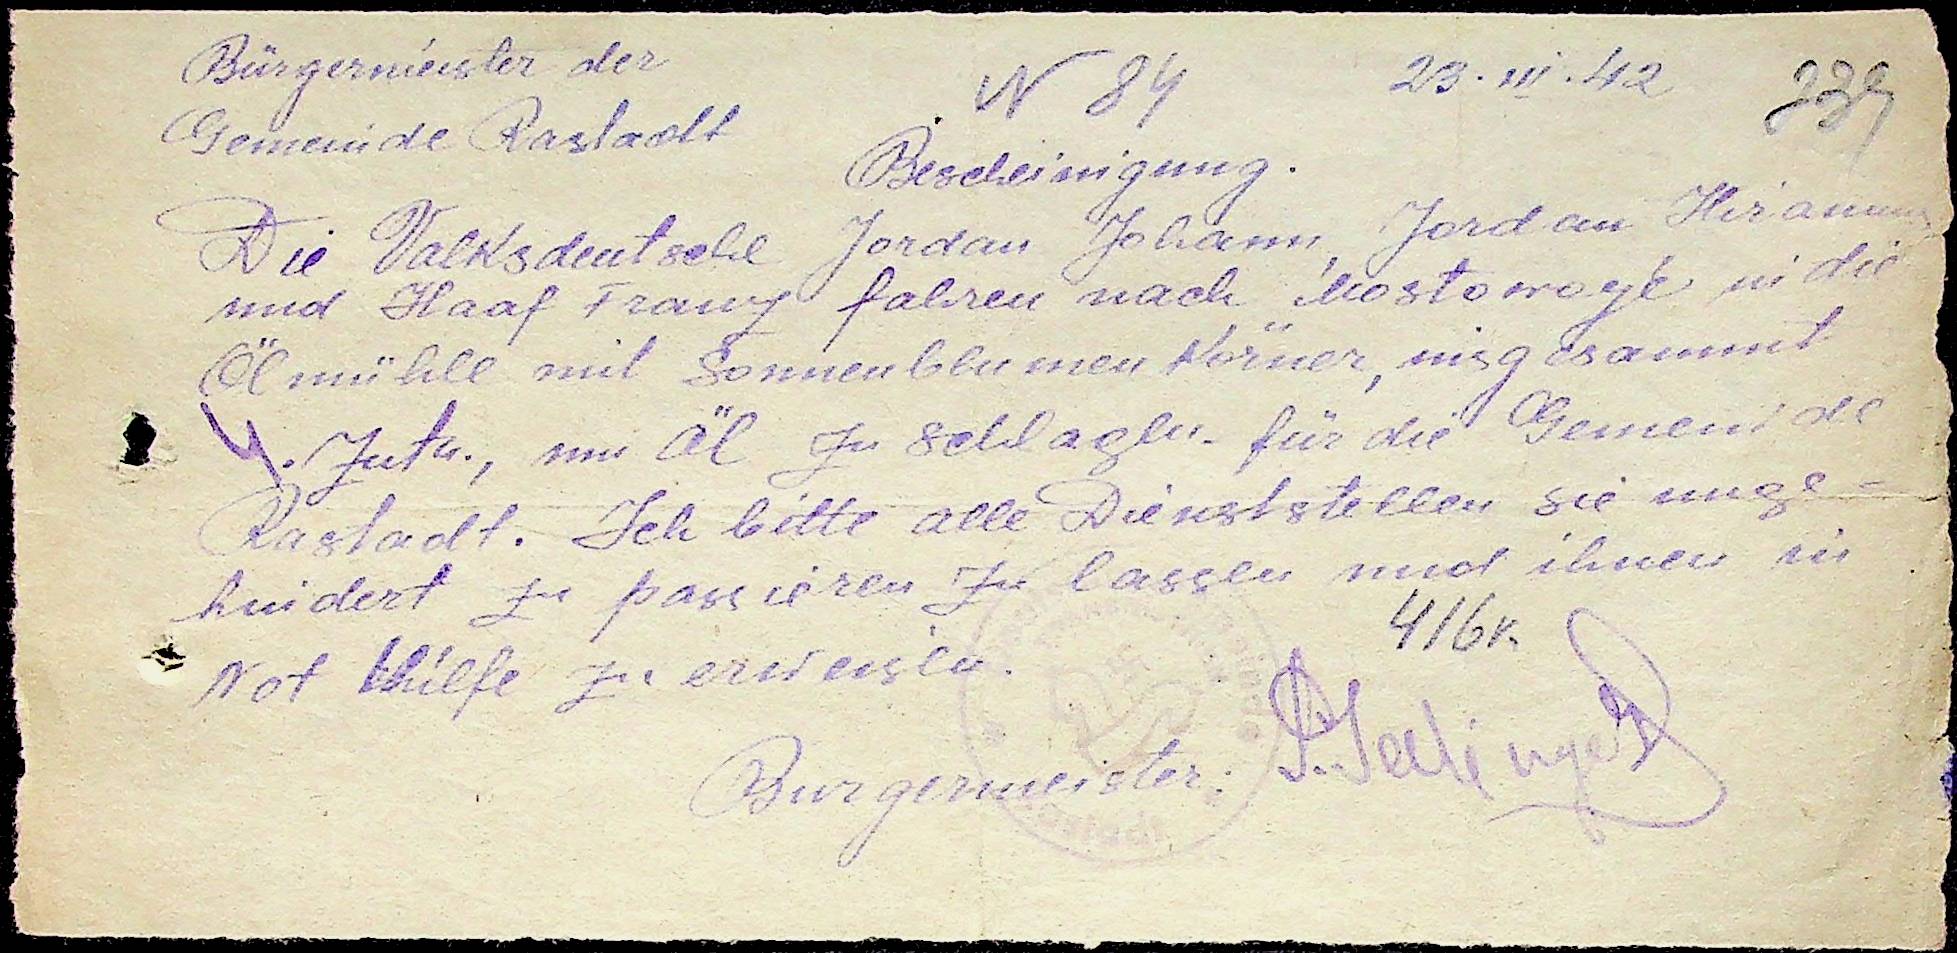 Bürgermeister der
Gemeinde Rastadt
N 84
23.III.42
339
Bescheinigung.
Die Valksdeutsche Jordan Johann, Jordan
und Haaf Franz fahren nach Mostowoje in die
Ölmühle mit Sonnenblumen Körner, insgesammt
4. Zntn., um Öl zu schlagen für die Gemeinde
Rastadt. Ich bitte alle Dienststellen sie unge-
hindert zu passieren zu lassen und ihnen in
Not Hilfe zu erweisen.
416 k.
Burgermeister: